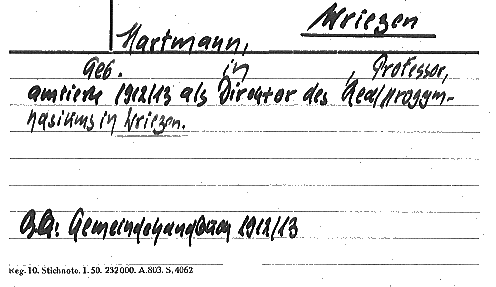 Wriezen
Hartmann,
geb. in , Professor,
amtierte 1912/13 als Direktor des Realprogym-
nasiums in Wriezen.
Gemeindehandbuch 1912/13
Reg. 10. Stichnote. I. 50. 232000. A. 803. S. 4062